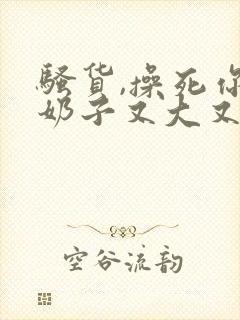 骚货,操死你
奶子又大又
空谷流韵